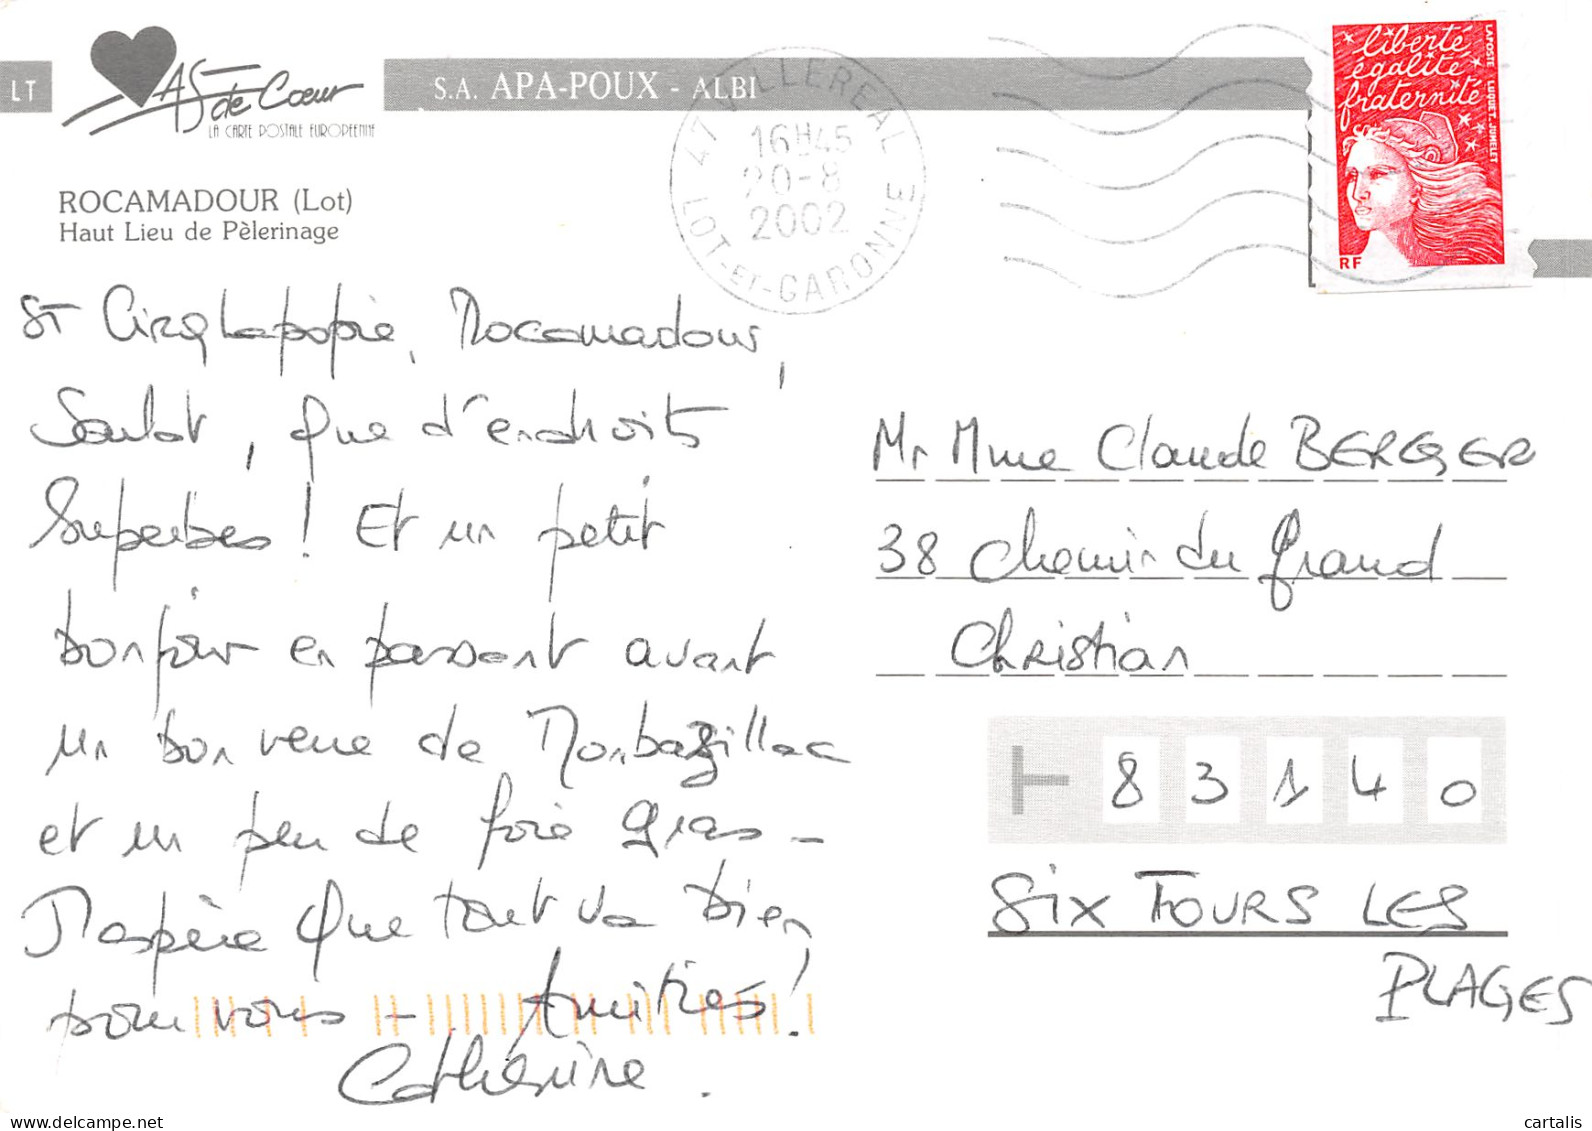 LT
AS de Cœur
LA CARTE POSTALE EUROPEENNE
S.A. APA-POUX - ALBI
ROCAMADOUR (Lot)
Haut Lieu de Pèlerinage
47 VILLEREAL
16H45
20-8
2002
LOT-ET-GARONNE
liberté
égalité
fraternité
LAPOSTE LUQUET. JUMELET
RF
ST Cirq Lapopie, Rocamadour,
Sarlat, que d'endroits
superbes ! Et un petit
bonjour en passant avant
un bon verre de Monbazillac
et un peu de foie gras -
J'espère que tout va bien
pour vous - Amitiés !
Catherine.
Mr Mme Claude BERGER
38 Chemin du Grand
Christian
83140
SIX FOURS LES
PLAGES
www.delcampe.net
cartalis